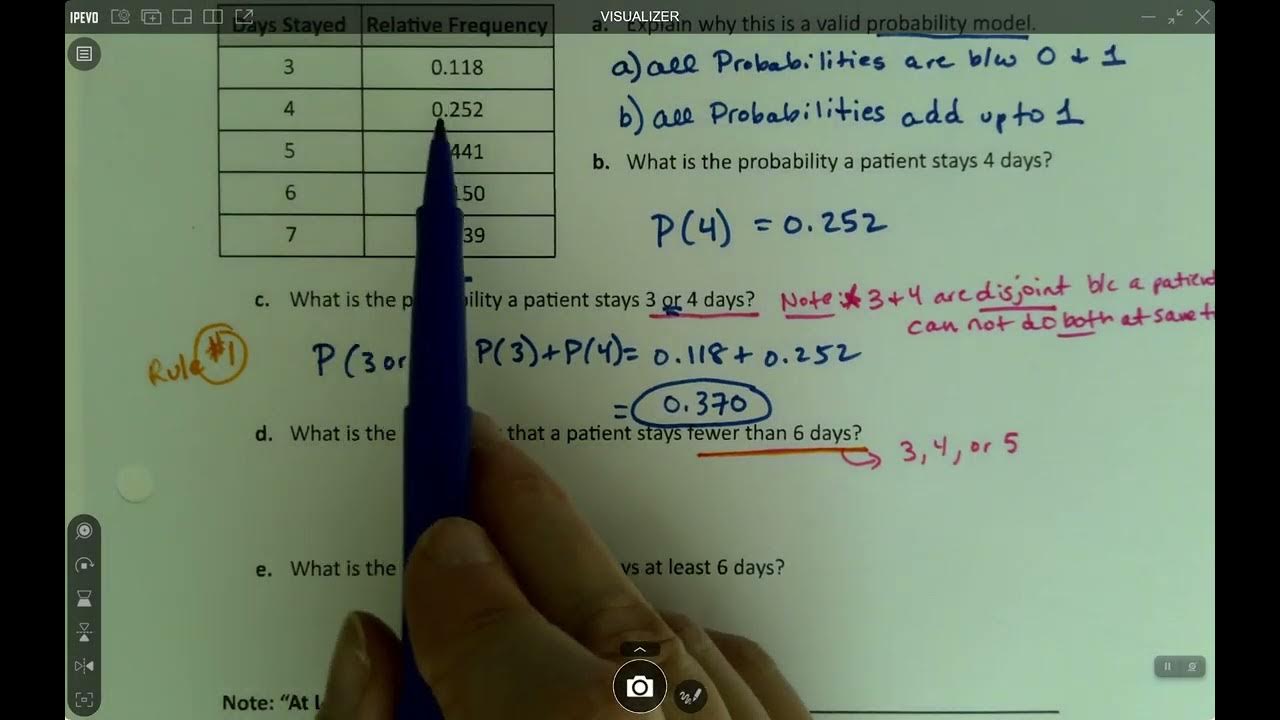 IPEVO
VISUALIZER
Days Stayed Relative Frequency
3 0.118
4 0.252
5 441
6 50
7 39
a. Explain why this is a valid probability model.
a) all Probabilities are b/w 0 + 1
b) all Probabilities add up to 1
b. What is the probability a patient stays 4 days?
P(4) = 0.252
c. What is the a patient stays 3 or 4 days?
Note: * 3 + 4 are disjoint b/c a
can not do both at same
Rule #1
P(3 or P(3)+P(4)= 0.118 + 0.252
= 0.370
d. What is the that a patient stays fewer than 6 days?
3, 4, or 5
e. What is the at least 6 days?
Note: “At